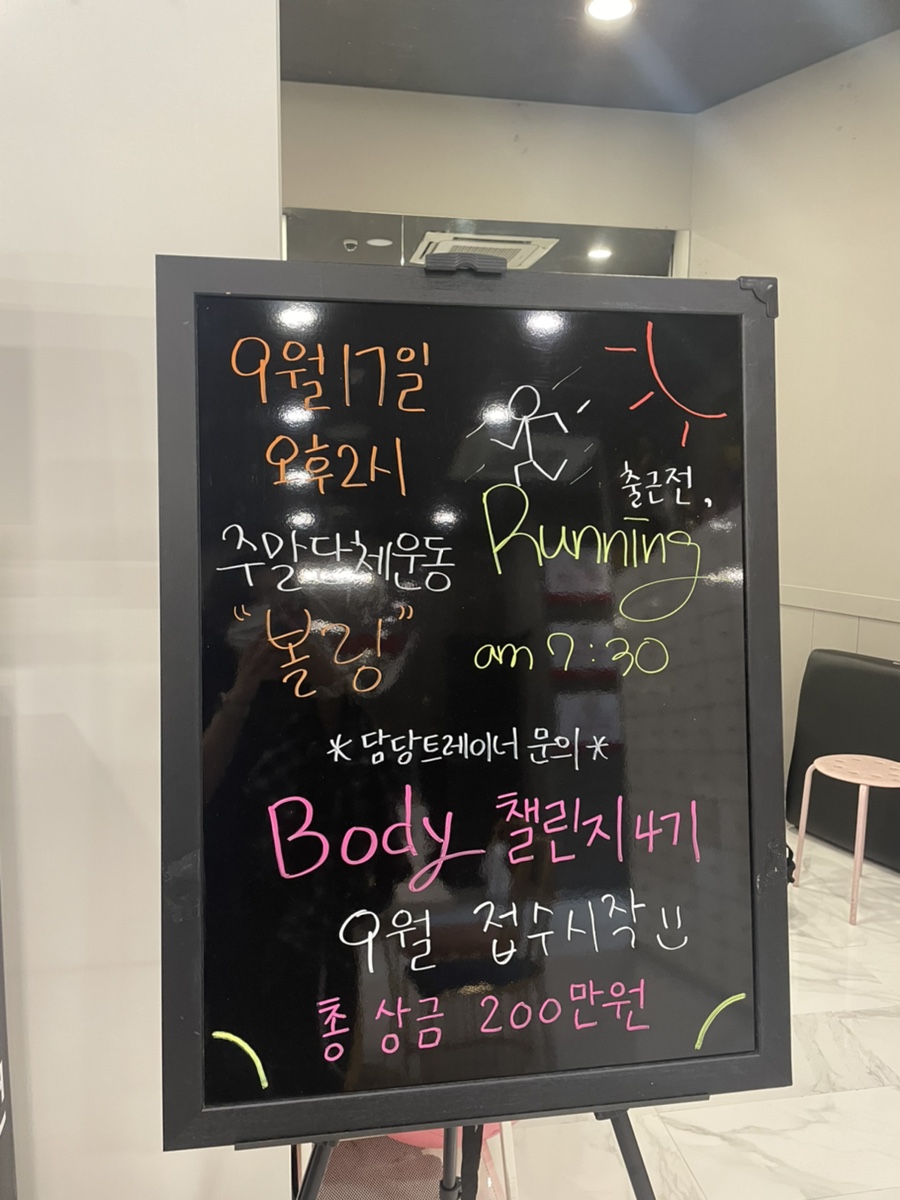 9월17일
오후2시
주말단체운동
"볼링"
출근전,
Running
am 7:30
*담당트레이너 문의*
Body 챌린지4기
9월 접수시작!!
총 상금 200만원